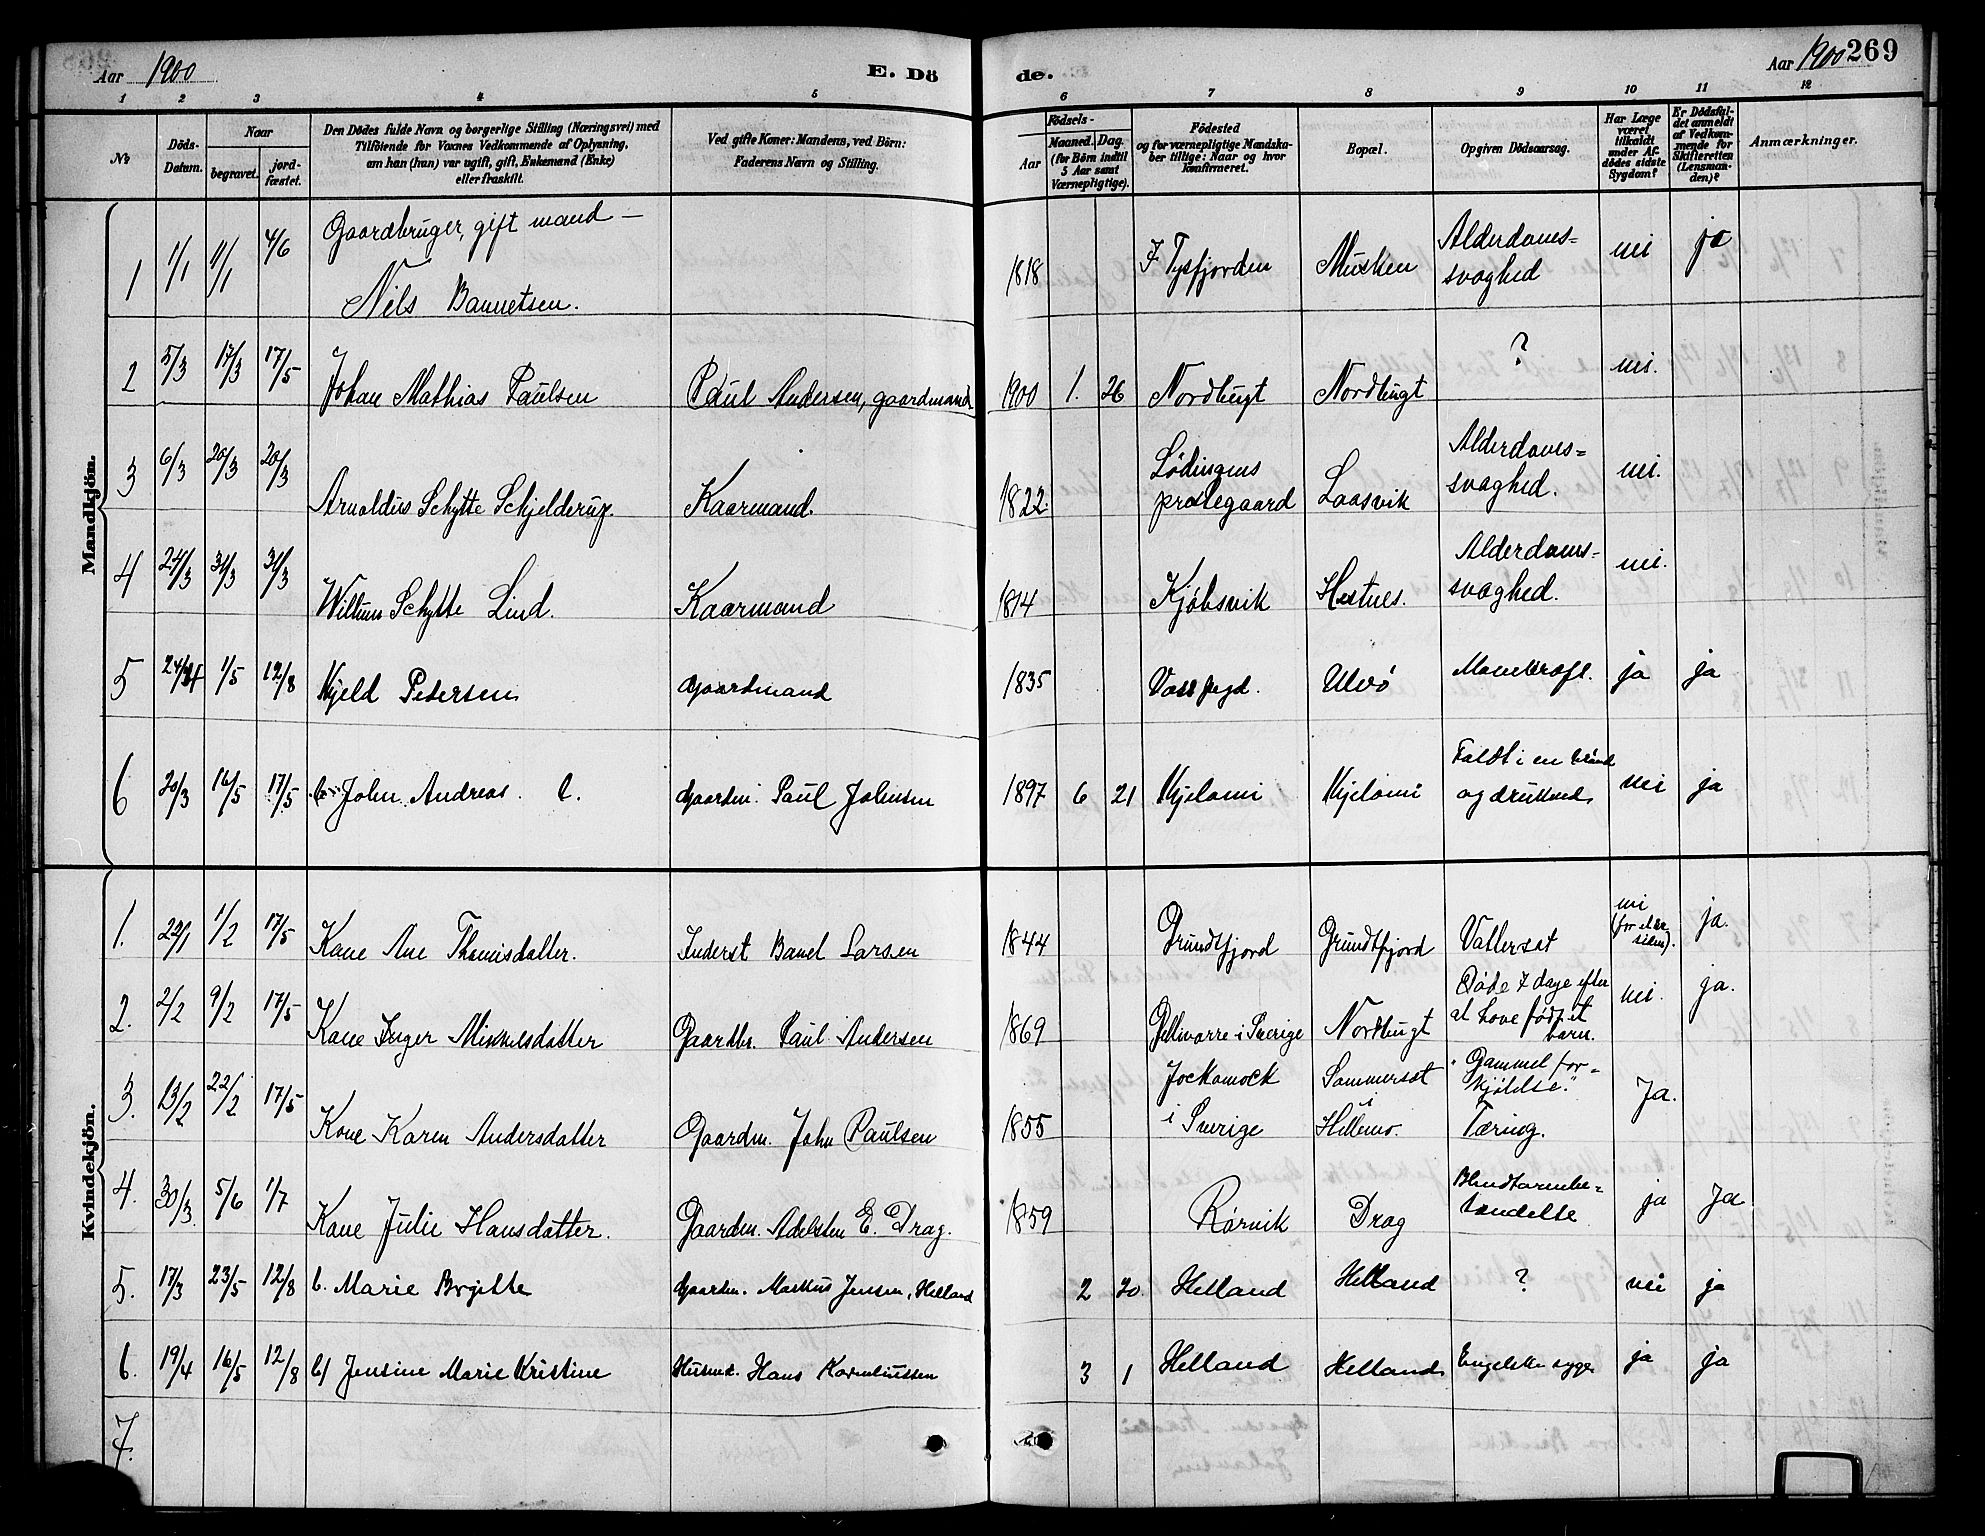 Aar 1900
E. Dö
de.
Aar 1900 269
1 2 3 4 5 6 7 8 9 10 11 12
No
Döds-
Datum.
Naar
begravet.
jord-
fæstet.
Den Dödes fulde Navn og borgerlige Stilling (Næringsvei) med
Tilföiende for Voxnes Vedkommende af Oplysning,
om han (hun) var ugift, gift, Enkemand (Enke)
eller fraskilt.
Ved gifte Koner: Mandens, ved Börn:
Faderens Navn og Stilling.
Födsels-
Aar
Maaned. Dag.
(for Börn indtil
5 Aar samt
Værnepligtige).
Födested
og for værnepligtige Mandska-
ber tillige: Naar og hvor
konfirmeret.
Bopæl.
Opgiven Dödsaarsag.
Har Læge
været
tilkaldt
under Af-
dödes sidste
Sygdom?
Er Dödsfal-
det anmeldt
af Vedkom-
mende for
Skifteretten
(Lensman-
den)?
Anmærkninger.
Mandkjön.
1 1/1 11/1 4/6 Gaardbruger, gift mand —
Nils Bannetsen.
1818 I Tysfjorden Musken Alderdoms=
svaghed nei ja
2 5/3 17/3 17/5 Johan Mathias Paulsen Paul Andersen, gaardmand 1900 1. 26 Nordbugt Nordbugt ? nei.
3 6/3 20/3 20/3 Arnoldus Schytte Schjelderup. Kaarmand. 1822. Lødingens
prestegaard Laasvik Alderdoms=
svaghed. nei.
4 24/3 31/3 31/3 Schytte Lind. Kaarmand 1814 Kjøbsvik Hestnes. Alderdoms=
svaghed. nei.
5 1/5 12/8 Kjeld Pedersen Gaardmand 1835 Ulvø Mavekræft. ja ja
6 20/3 16/5 17/5 John Andreas Gaardm. Paul Johnsen 1897 6 21 Kjelomi Kjelomi Faldt i en
og druknede nei ja
Kvindekjön.
1. 22/1 1/2 17/5 Kone Ane Thomisdatter. Inderst Banel Larsen 1844 Grundtfjord Grundtfjord Vattersot nei
ja.
2. 2/2 9/2 17/5 Kone Inger Mikkelsdatter Gaardbr. Paul Andersen 1869 Gellivarre i Sverige Nordbugt Døde 7 dage efter
at have født et
barn. nei. ja.
3. 13/2 22/2 17/5 Kone Karen Andersdatter Gaardm. John Paulsen 1855 Jockamock
i Sverige Sommerset
i
Hellemo. "Gammel for=
kjølelse."
Tæring. Ja.
4. 30/3 5/6 1/7 Kone Julie Hansdatter. Gaardm. Adelsten E. Drag. 1859 Rørvik Drag Blindtarmbe=
tændelse ja Ja
5. 17/3 23/5 12/8 b. Marie Brgitte Gaardm. Markus Jensen, Helland 2 20 Helland Helland ? nei ja
6. 19/4 16/5 12/8 b/ Jensine Marie Kristine Husmd. Hans Korneliussen 3 1 Helland Helland Engelske syge ja ja
7.